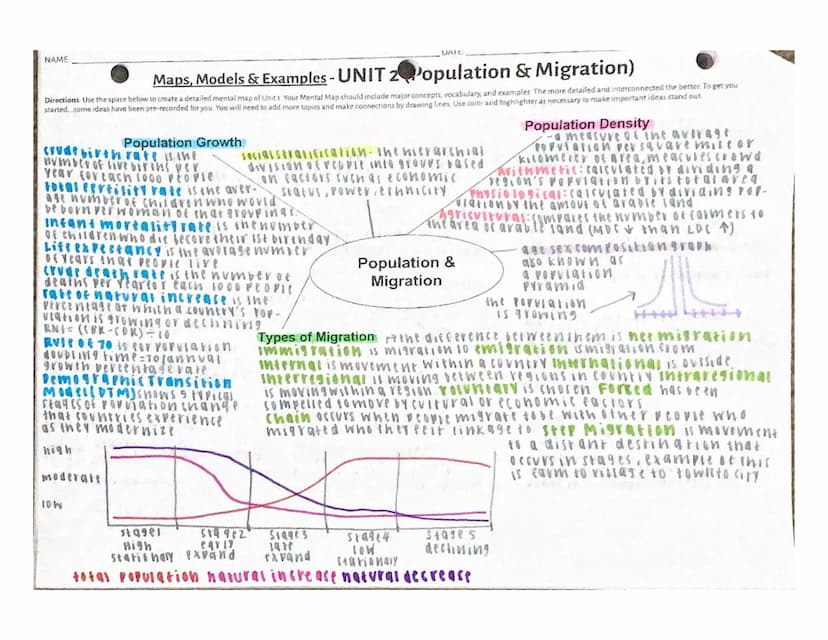 NAME:
DATE:
Maps, Models & Examples - UNIT 2 (Population & Migration)
Directions: Use the space below to create a detailed mental map of Unit 1. Your Mental Map should include major concepts, vocabulary, and examples. The more detailed and interconnected the better. To get you
started...some ideas have been recorded for you. You will need to add more topics and make connections by drawing lines. Use color and highlighter as necessary to make important ideas stand out.
Population Growth
crude birth rate is the
number of live births per
year for each 1000 people
total fertility rate is the aver-
age number of children who would
be born per woman of that group in a
infant mortality rate is the number
of children who die before their 1st birthday
Life expectancy is the average number
of years that people live
crude death rate is the number of
deaths per year for each 1000 people
rate of natural increase is the
percentage at which a country's pop-
ulation is growing or declining
RNI= (CBR-CDR) ÷ 10
Rule of 70 is for population
doubling time=70/annual
growth percentage rate
Demographic Transition
Model(DTM) shows 5 typical
stages of population change
that countries experience
as they modernize
social stratification- the hierarchial
division of people into groups based
on factors such as economic
status, power, ethnicity
Population Density
-a measure of the average
population per square mile or
kilometer of area, measures crowd
Arithmetic: calculated by dividing a
region's population by its total area
Physiological: calculated by dividing pop-
ulation by the amout of arable land
Agricultural: compares the number of farmers to
the area of arable land (MDC ↓ than LDC ↑)
Population &
Migration
age sex composition graph
also known as
a population
pyramid
the population
is growing
Types of Migration
the difference between them is net migration
immigration is migration to emigration is migration from
Internal is movement within a country International is outside
Interregional is moving between regions in country Intraregional
is moving within a region voluntary is chosen Forced has been
compelled to move by cultural or economic factors
Chain occurs when people migrate to be with other people who
migrated who they felt linkage to Step Migration is movement
to a distant destination that
occurs in stages, example of this
is farm to village to town to city
high
moderate
low
stage 1
high
stationary
stage 2
early
expand
stage 3
late
expand
stage 4
low
stationary
stage 5
declining
total population natural increase natural decrease